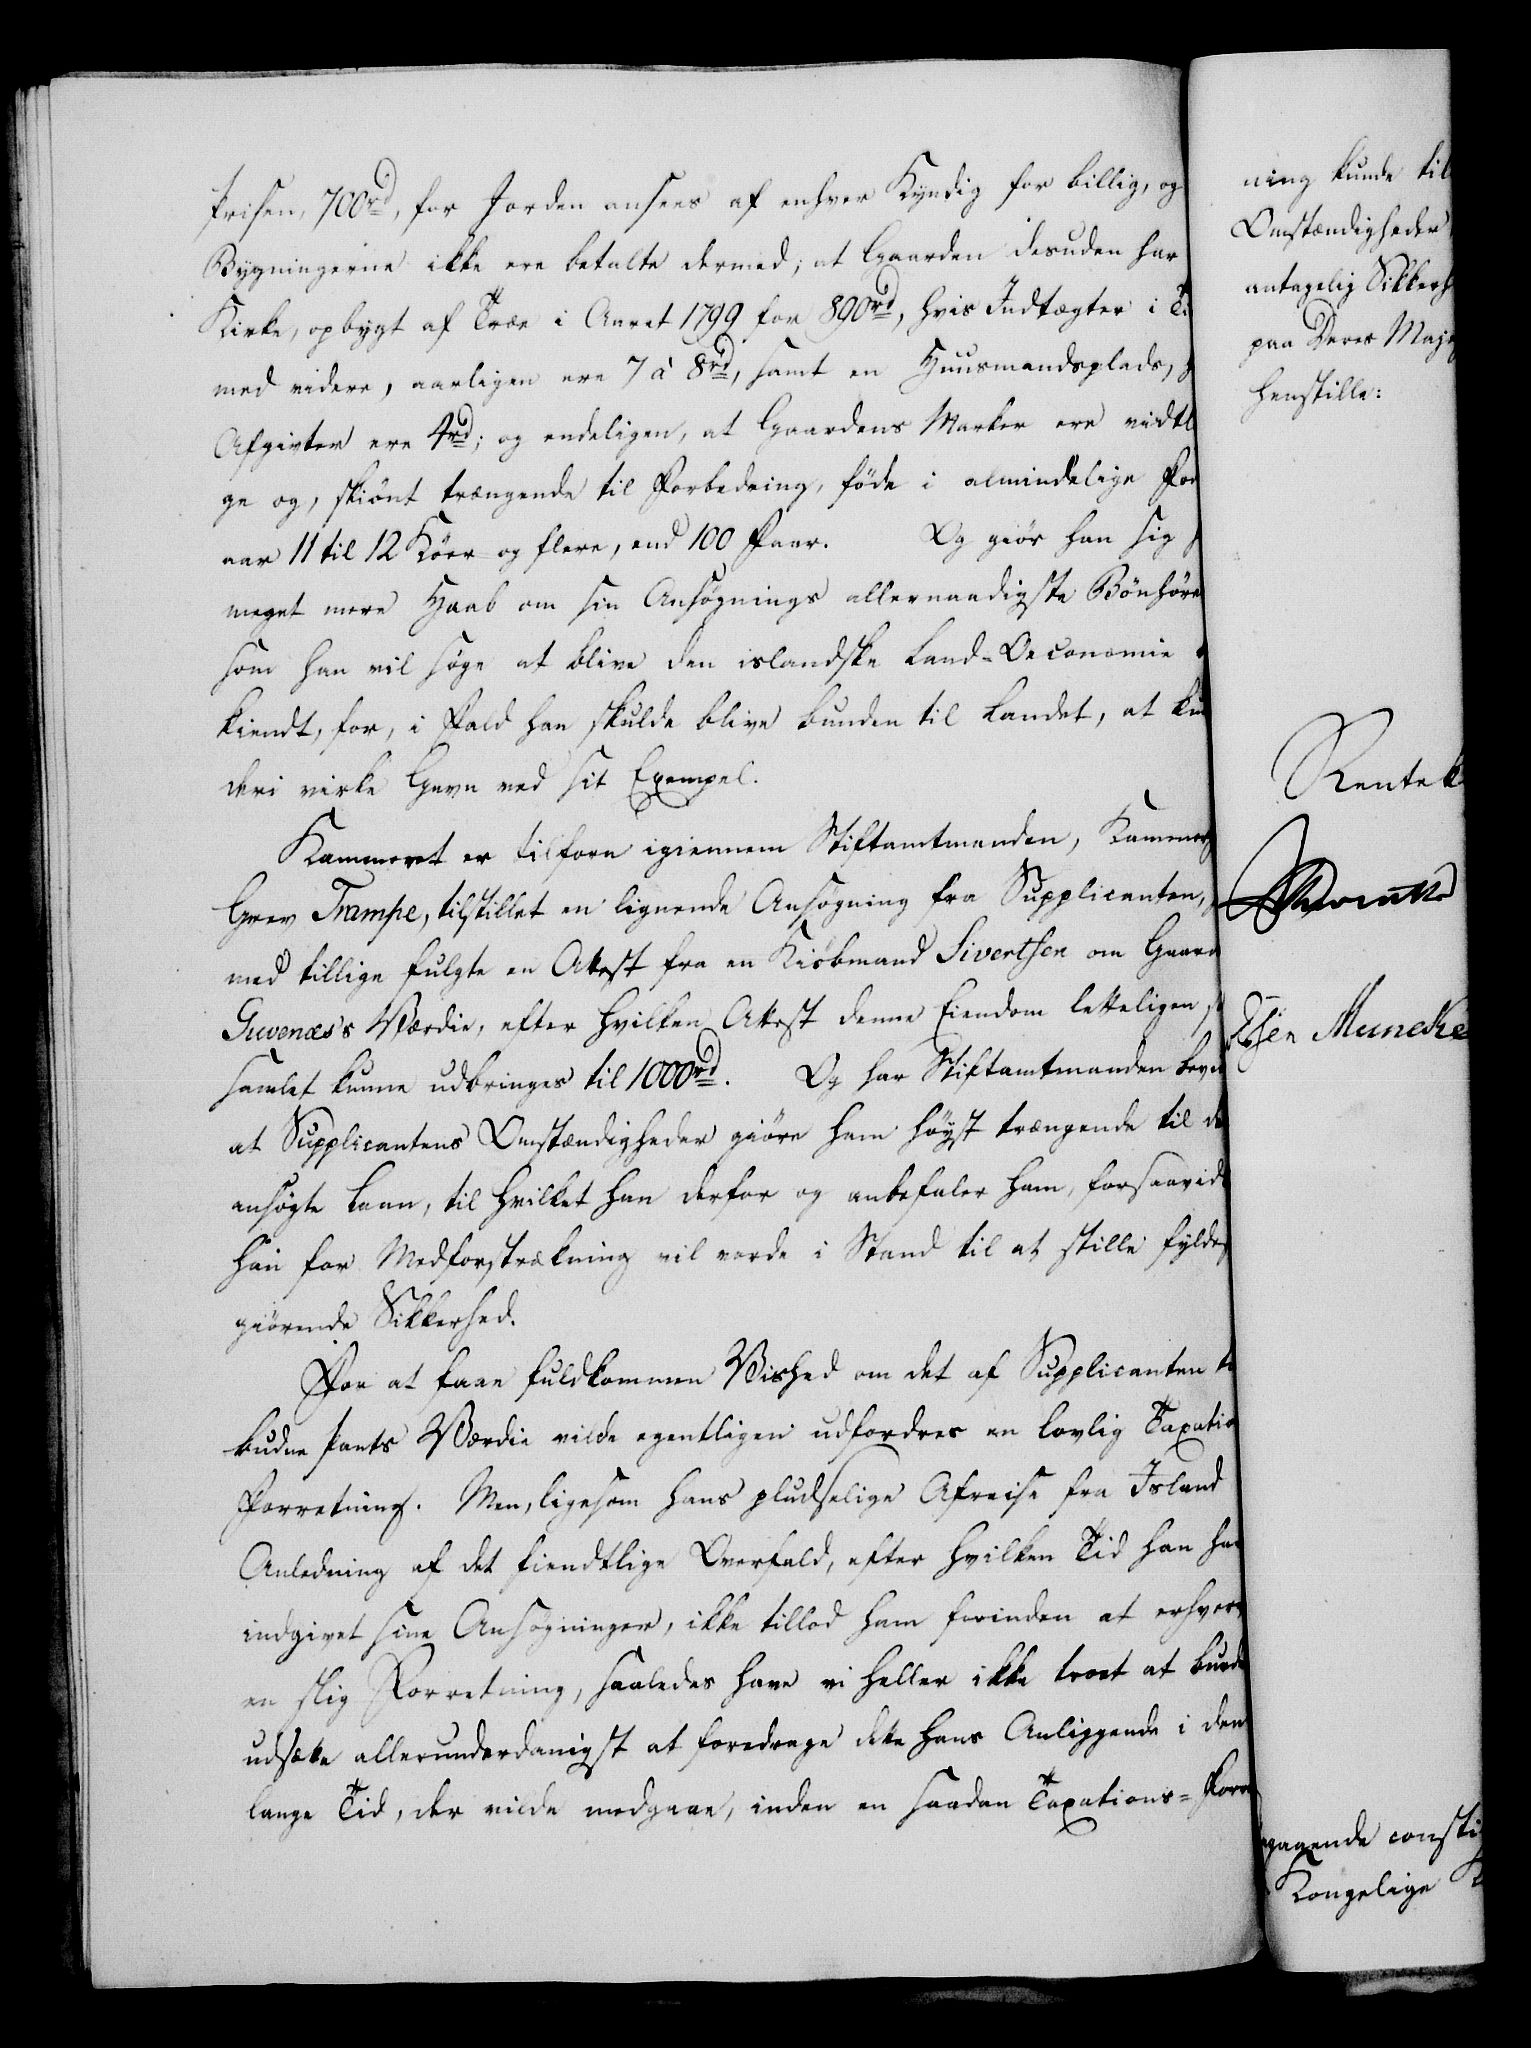 Prisen, 700rd, for Jorden ansees af enhver Kyndig for billig, og
Bygningerne ikke ere betalte dermed; at Gaarden desuden har
Kirke, opbygt af Træe i Aaret 1799 for 890rd, hvis Indtægter i Ti
med videre, aarligen ere 7 à 8rd, samt en Huusmandsplads,
Afgivter ere 4rd; og endeligen, at Gaardens Marker ere vidtl
ge og, skiönt trængende til Forbedring, föde i almindelige For
aar 11 til 12 Köer og flere, end 100 Faar. Og giör han sig
meget mere Haab om sin Ansögnings allernaadigste Bönhöre
som han vil söge at blive den islandske Land-Oeconomie
kiendt, for, i Fald han skulde blive bunden til Landet, at kun
deri virke Gavn ved sit Exempel.
Kammeret er tilforn igiennem Stiftamtmanden, Kammerh
Grev Trampe, tilstillet en lignende Ansögning fra Supplicanten,
med tillige fulgte en Attest fra en Kiöbmand Sivertsen om Gaard
Guvenæs's Værdie, efter hvilken Attest denne Eiendom letteligen
samlet kunne udbringes til 1000rd. Og har Stiftamtmanden bevid
at Supplicantens Omstændigheder giöre ham höyst trængende til de
ansögte Laan, til hvilket han derfor og anbefaler ham, forsaavidt
han for Medforstrækning vil vorde i Stand til at stille fyldest
giörende Sikkerhed.
For at faae fuldkommen Vished om det af Supplicanten ti
budne Pants Værdie vilde egentligen udfordres en lovlig Taxatio
Forretning. Men, ligesom hans pludselige Afreise fra Island
Anledning af det fiendtlige Overfald, efter hvilken Tid han har
indgivet sine Ansögninger, ikke tillod ham forinden at erhverv
en slig Forretning, saaledes have vi heller ikke troet at burde
udsætte allerunderdanigst at foredrage dette hans Anliggende i den
lange Tid, der vilde medgaae, inden en saadan Taxations-Forre
ning kunde til
Omstændigheder
antagelig Sikkerh
paa Deres Maje
henstille:
Rentek
Muncke
gaaende consti
Kongelige K